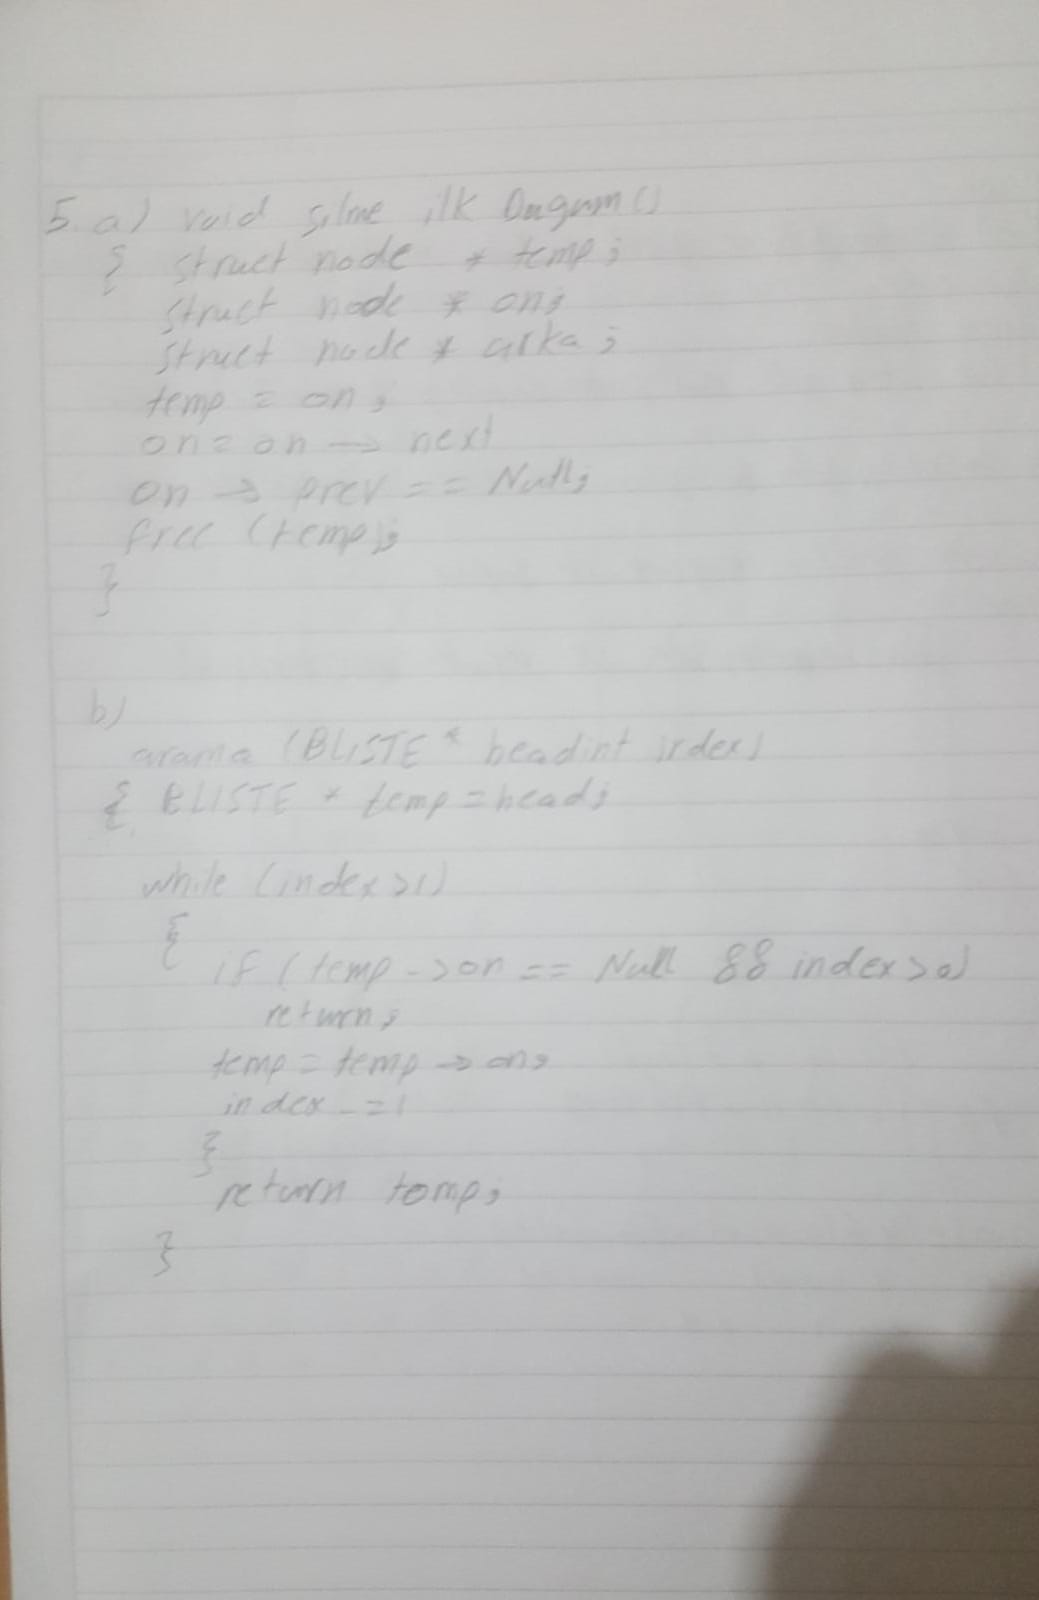 5. a) void silme ilk Dugum ()
{ struct node * temp;
struct node * on;
struct node * arka;
temp = on;
on = on → next
on → prev == Null;
free (temp);
}
b)
arama (BLISTE * headint index)
{ BLISTE * temp = head;
while (index > 1)
{
if (temp -> on == Null && index > 0)
return;
temp = temp → on;
index -= 1
}
return temp;
}